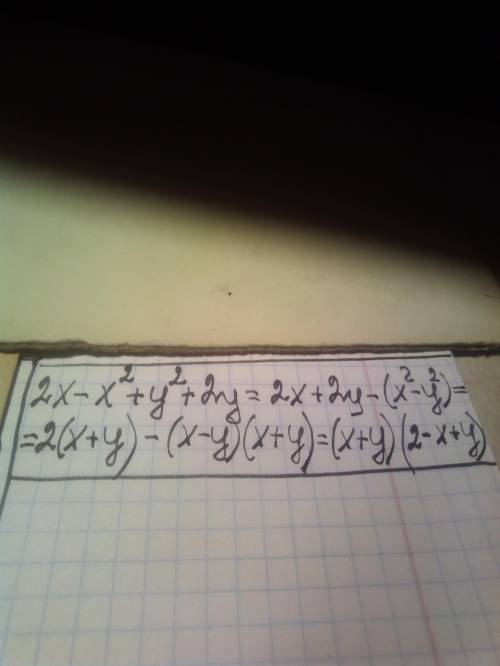 2x - x² + y² + 2y = 2x + 2y - (x² - y²) =
= 2(x + y) - (x - y)(x + y) = (x + y)(2 - x + y)